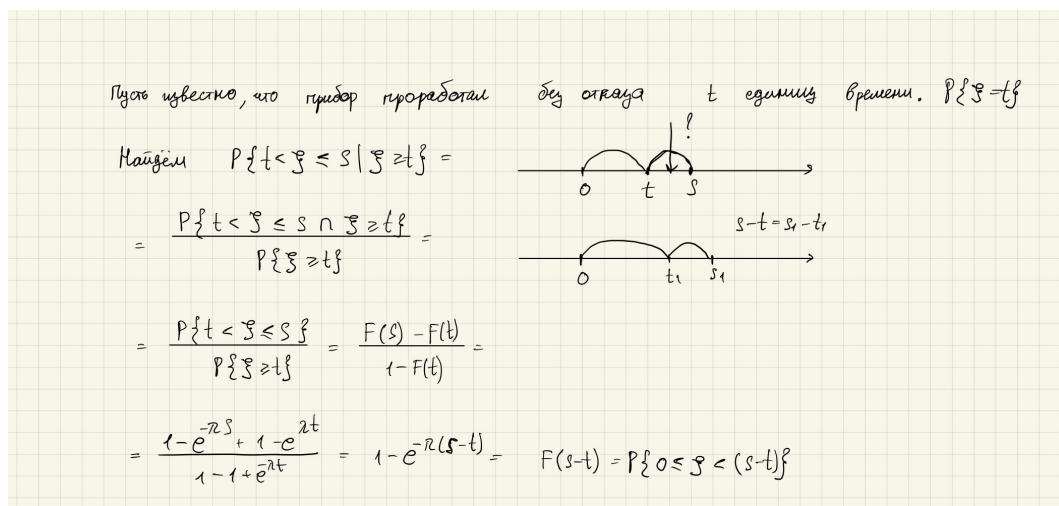 Пусть известно, что прибор проработал без отказа t единиц времени. P{ξ=t}
Найдём P{t<ξ≤S|ξ≥t} =
!
0 t S
= P{t<ξ≤S ∩ ξ≥t} / P{ξ≥t} =
s-t=s₁-t₁
0 t₁ s₁
= P{t<ξ≤S} / P{ξ≥t} = F(S)-F(t) / 1-F(t) =
= 1-e^{-λS}+1-e^{λt} / 1-1+e^{-λt} = 1-e^{-λ(S-t)} = F(s-t) = P{0≤ξ<(s-t)}